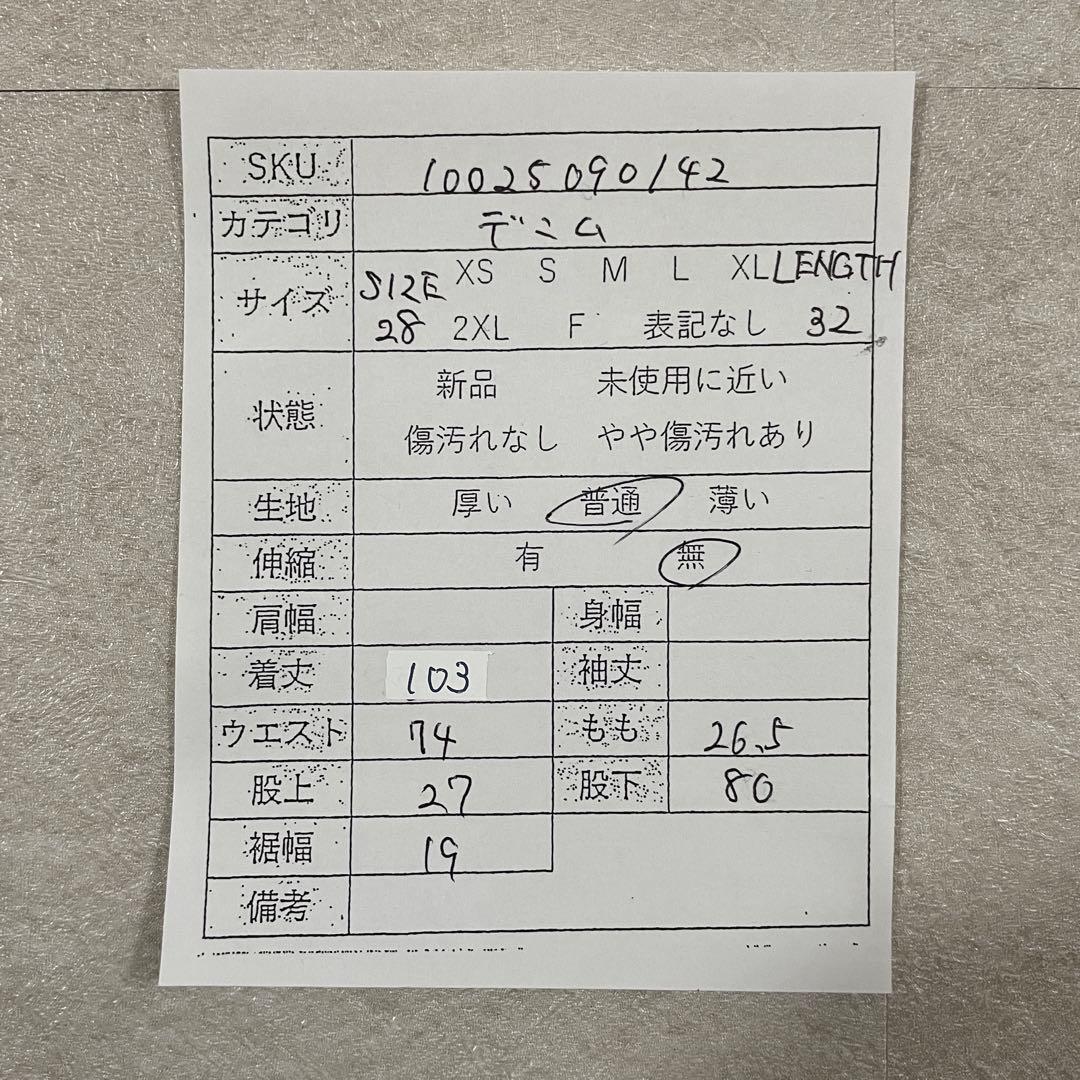 SKU 10025090142
カテゴリ デニム
サイズ SIZE XS S M L XL LENGTH
28 2XL F 表記なし 32
状態 新品 未使用に近い
傷汚れなし やや傷汚れあり
生地 厚い 普通 薄い
伸縮 有 無
肩幅 身幅
着丈 103 袖丈
ウエスト 74 もも 26.5
股上 27 股下 80
裾幅 19
備考